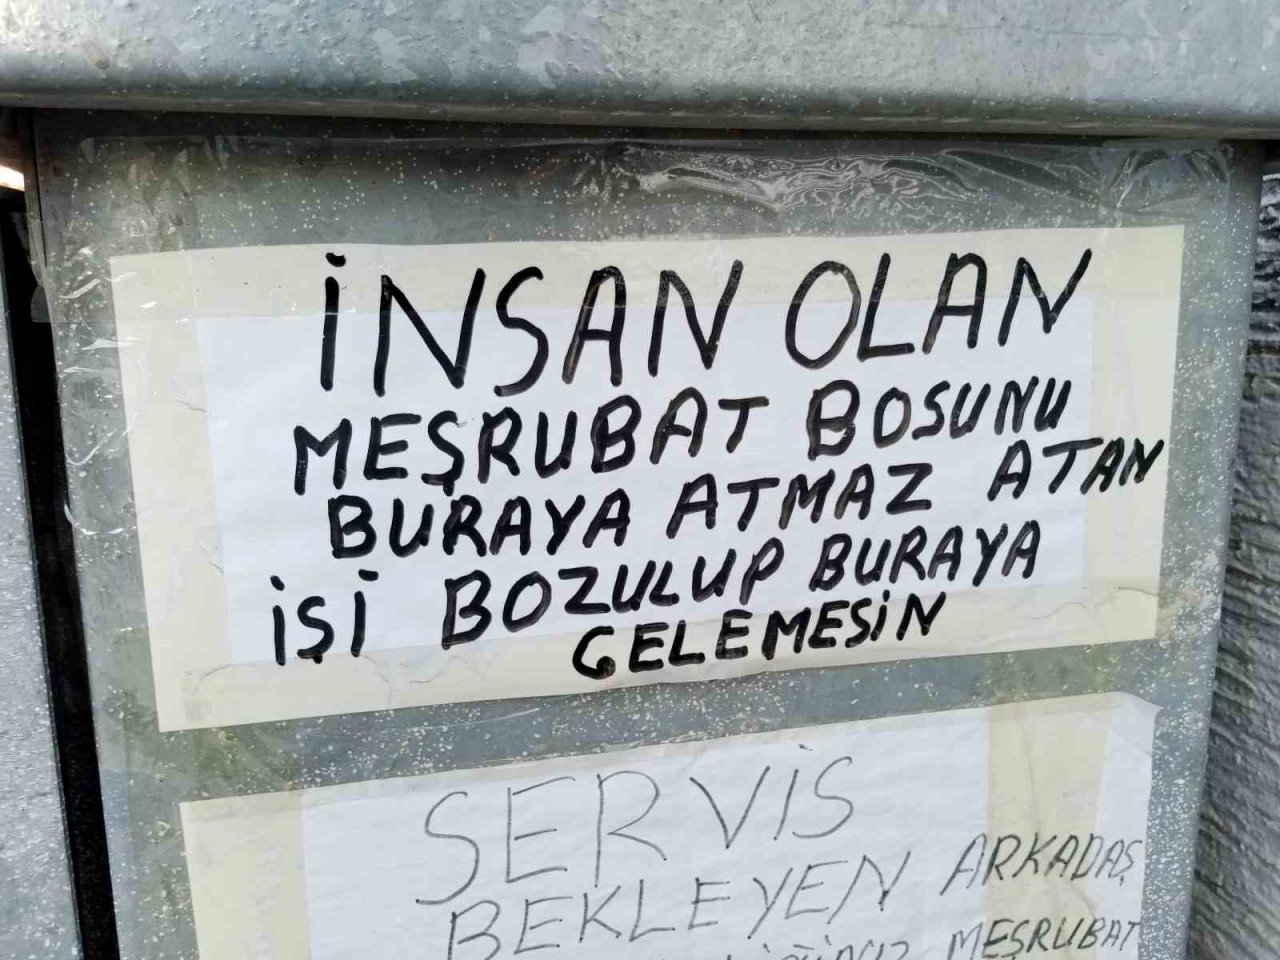 İNSAN OLAN
MEŞRUBAT BOSUNU
BURAYA ATMAZ ATAN
İŞİ BOZULUP BURAYA
GELEMESİN
SERVİS
BEKLEYEN ARKADAŞ
MEŞRUBAT